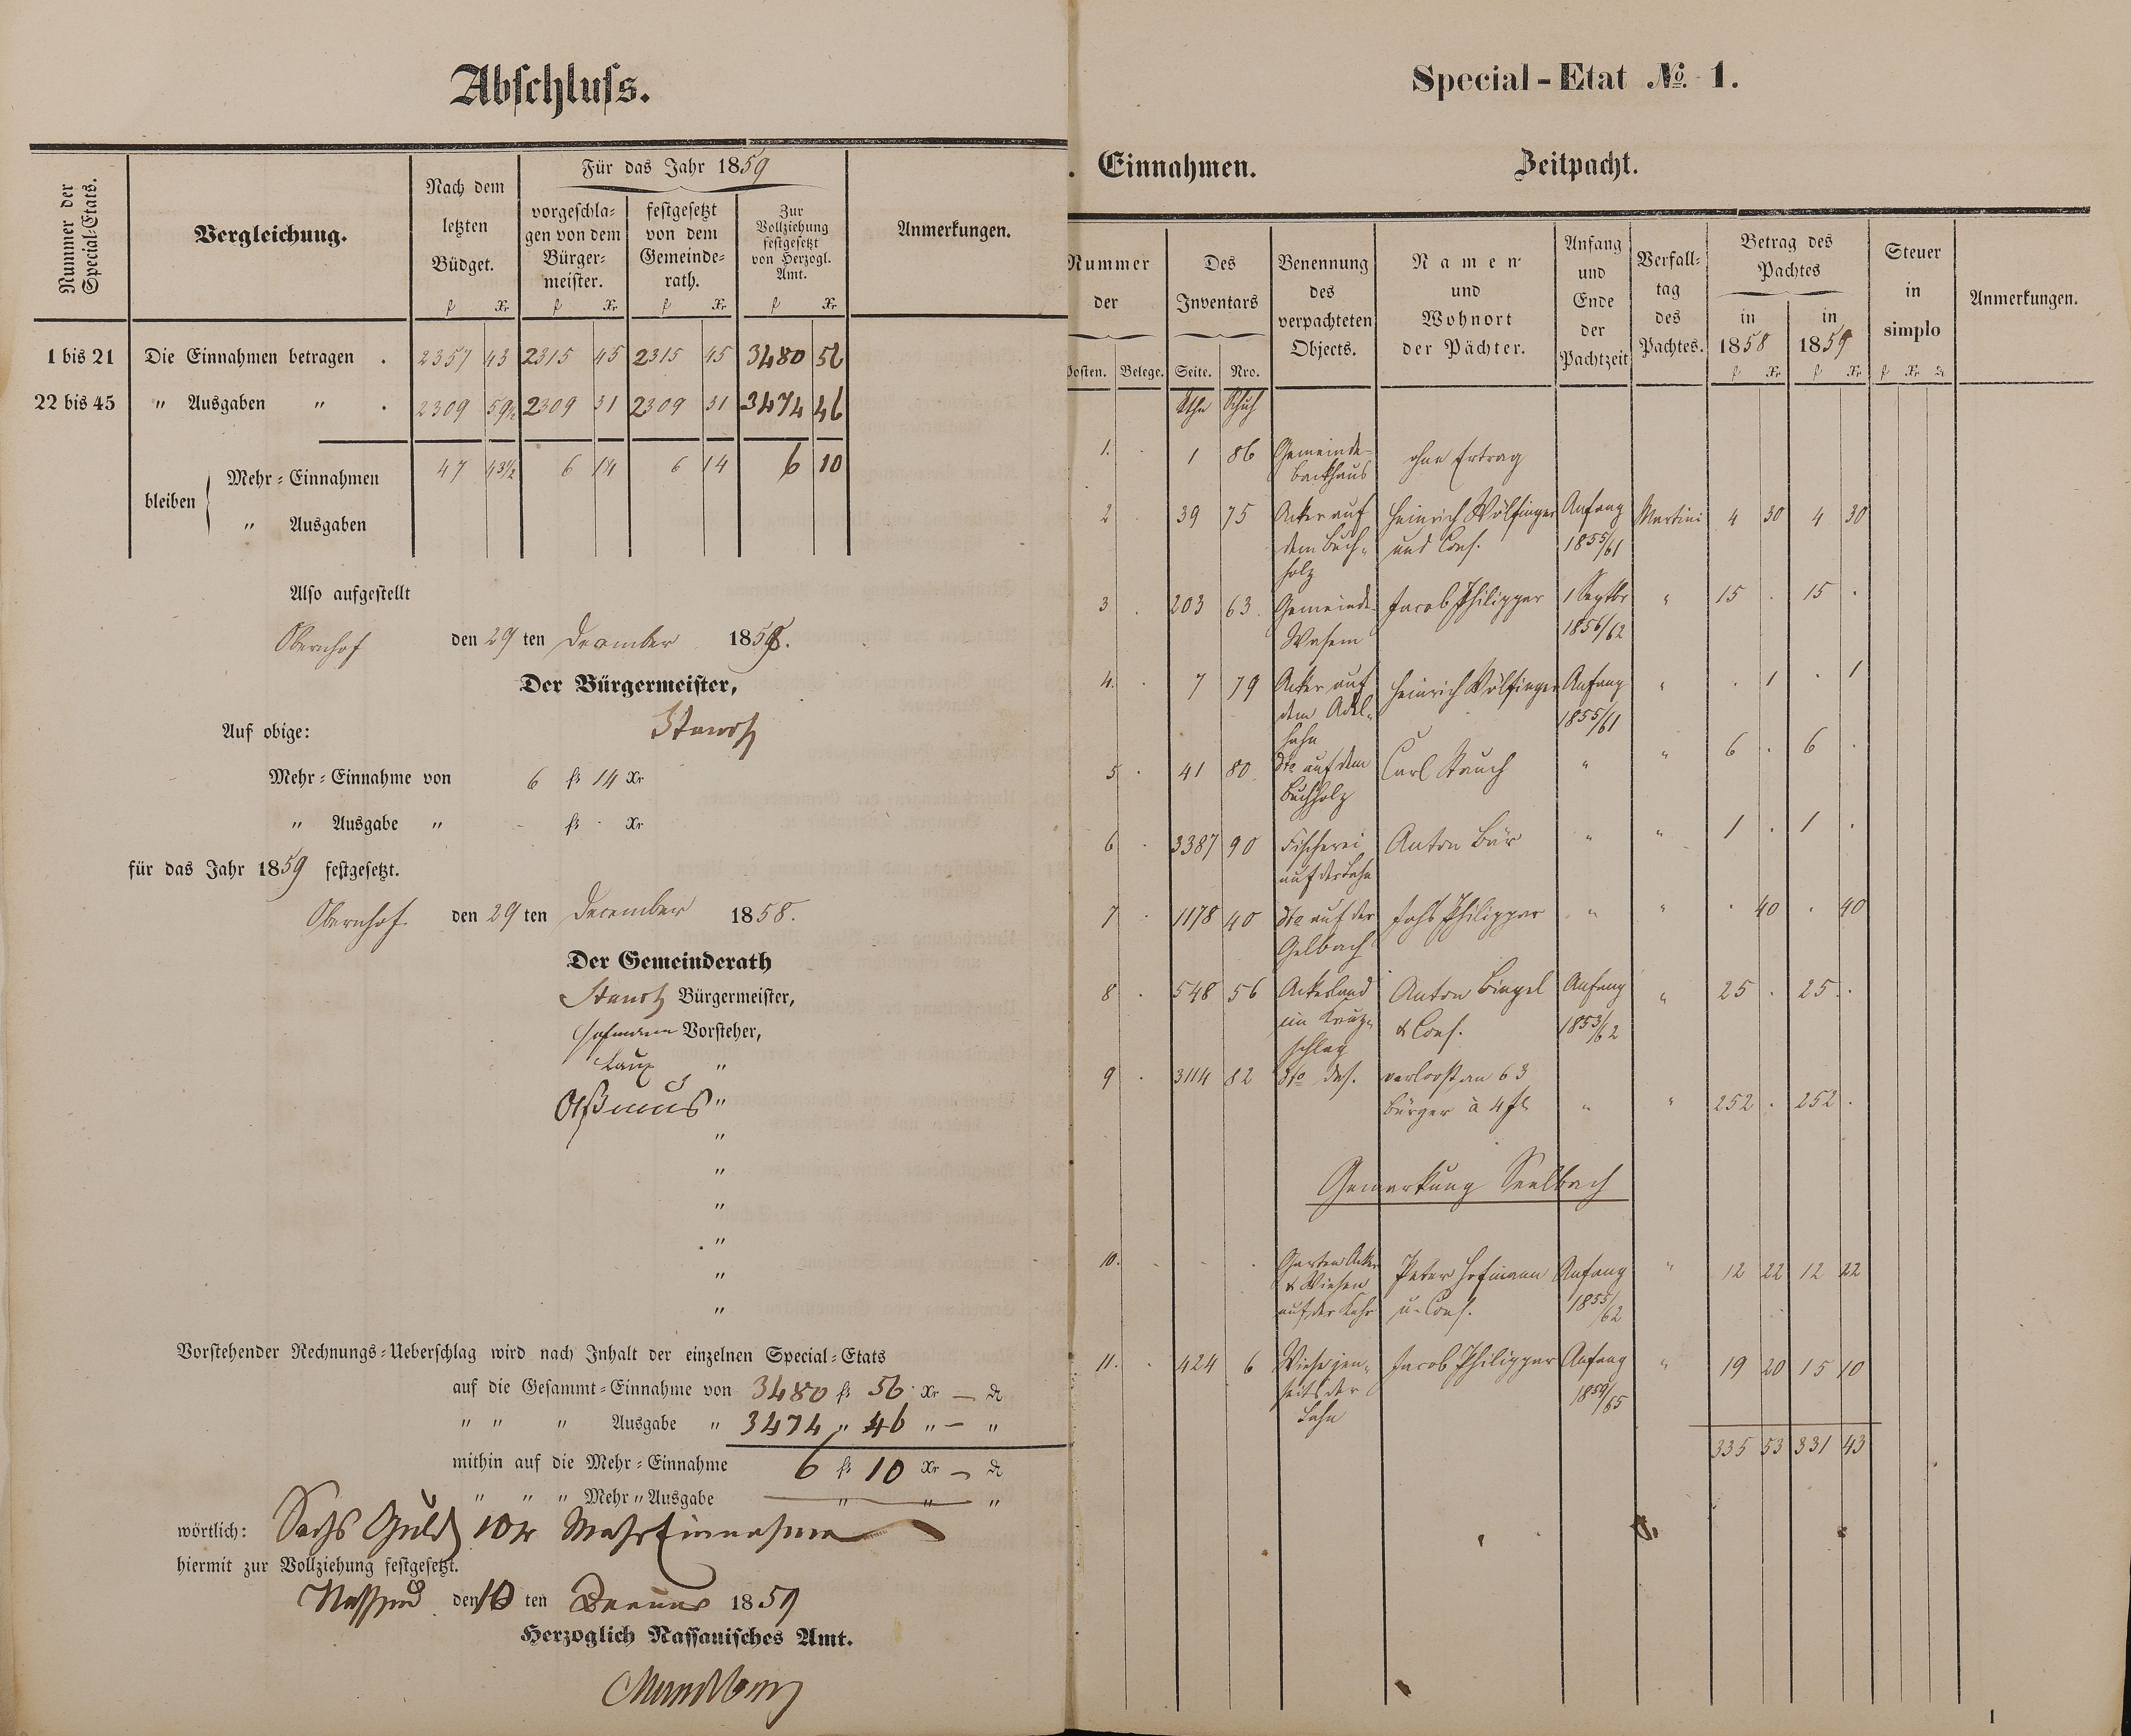 Abschluss.
Nummer der Special-Etats.
Vergleichung.
Nach dem letzten Büdget.
Für das Jahr 1859
vorgeschlagen von dem Bürgermeister.
festgesetzt von dem Gemeinderath.
Zur Vollziehung festgesetzt von Herzogl. Amt.
Anmerkungen.
fl Xr fl Xr fl Xr fl Xr
1 bis 21 Die Einnahmen betragen . 2357 43 2315 45 2315 45 3480 56
22 bis 45 " Ausgaben " . 2309 59½ 2309 31 2309 31 3474 46
bleiben Mehr-Einnahmen 47 43½ 6 14 6 14 6 10
" Ausgaben
Also aufgestellt
Obernhof den 29 ten December 1858.
Der Bürgermeister,
Auf obige:
Mehr-Einnahme von 6 fl 14 Xr
" Ausgabe " - fl - Xr
für das Jahr 1859 festgesetzt.
Obernhof den 29 ten December 1858.
Der Gemeinderath
Bürgermeister,
Hofmann Vorsteher,
Laux "
"
"
"
"
"
"
"
Vorstehender Rechnungs-Ueberschlag wird nach Inhalt der einzelnen Special-Etats
auf die Gesammt-Einnahme von 3480 fl 56 Xr —
" " " Ausgabe " 3474 " 46 " — "
mithin auf die Mehr-Einnahme 6 fl 10 Xr —
" " " Mehr " Ausgabe " " "
wörtlich: Sechs Guld 10 Xr Mehr Einnahme
hiermit zur Vollziehung festgesetzt.
Nassau den 10 ten Januar 1859
Herzoglich Nassauisches Amt.
Special-Etat No. 1.
. Einnahmen. Zeitpacht.
Nummer der
Posten. Belege.
Des Inventars
Seite. Nro.
Benennung des verpachteten Objects.
Namen und Wohnort der Pächter.
Anfang und Ende der Pachtzeit
Verfalltag des Pachtes.
Betrag des Pachtes
in 1858 in 1859
fl Xr fl Xr
Steuer in simplo
fl Xr
Anmerkungen.
Rthn Schuh
1. 1 86 Gemeinde-
backhaus ohne Ertrag
2 39 75 Acker auf Heinrich Wölfinger Anfang Martini 4 30 4 30
dem Buch- und Cons. 1855/61
holz
3 203 63 Gemeinde Jacob Philippar 1 Septbr " 15 . 15 .
Wasem 1856/62
4. 7 79 Acker auf Heinrich Wölfinger Anfang " . 1 . 1
dem Adel- 1855/61
hahn
5 41 80 dto auf dem Carl Stauch " " 6 . 6 .
Buchholz
6 3387 90 Fischerei Anton Bär " " 1 . 1 .
auf der Lahn
7 1178 40 dto auf der Johs Philippar " " . 40 . 40
Gelbach
8 548 56 Ackerland Anton Bingel Anfang " 25 . 25 .
im Kreuz- & Cons. 1853/62
schlag
9 3114 82 dto das. verloost an 63
Bürger à 4 fl " " 252 . 252 .
Gemarkung Seelbach
10. Garten Acker Peter Hofmann Anfang " 12 22 12 22
& Wiesen u. Cons. 1855/62
auf der
11. 424 6 Wiese jen- Jacob Philippar Anfang " 19 20 15 10
seits der 1859/65
Lahn
335 53 331 43
1